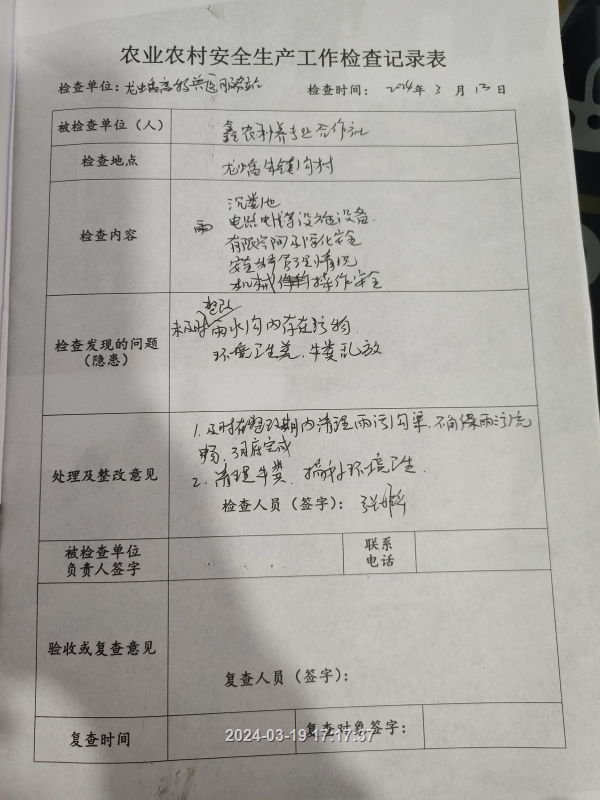 农业农村安全生产工作检查记录表
检查单位：龙蟠畜牧兽医
检查时间： 2024年 3 月 13日
被检查单位（人） 鑫农利养专业合作社
检查地点 龙蟠
检查内容
沉粪池
电路电线等设施设备
有限空间
安全
机械 操作安全
检查发现的问题
（隐患）
整改
未及时 雨水沟内存在污物
环境卫生差，牛粪乱放
处理及整改意见
1. 及时在整改期内清理雨污沟渠，
畅，3月底完成
2. 清理牛粪，搞好环境卫生.
检查人员（签字）：
被检查单位
负责人签字
联系
电话
验收或复查意见
复查人员（签字）：
复查时间
复查对象签字：
2024-03-19 17:17:37